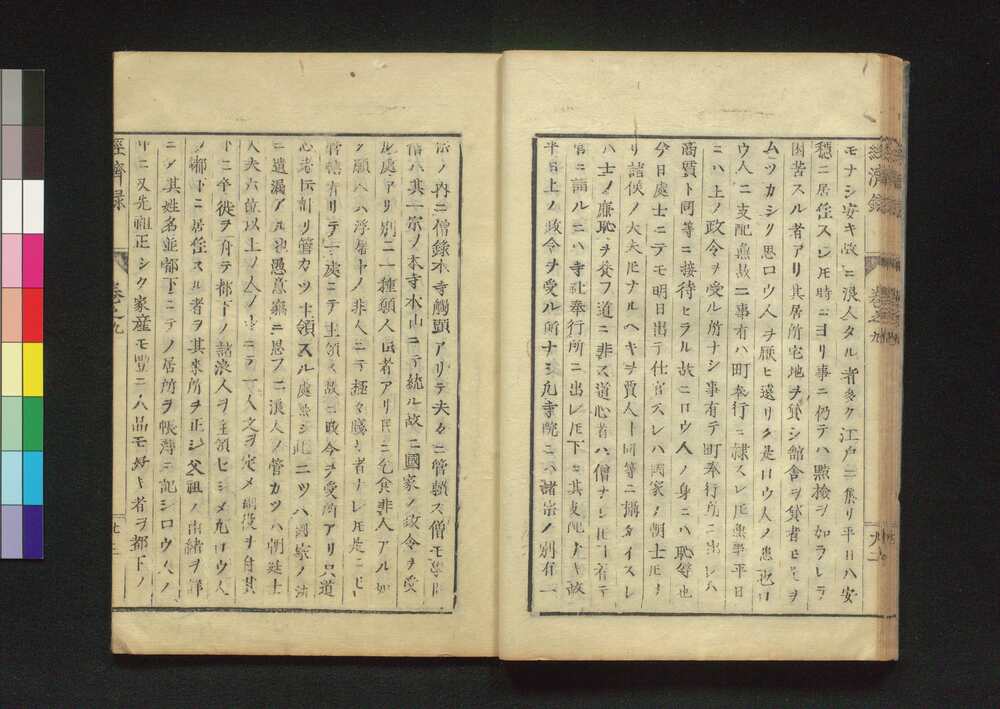 モナシ安キ故ニ浪人タル者多ク江戸ニ集リ平日ハ安
穏ニ居住スレ𪜈時ニヨリ事ニ仍テハ點檢ヲ加ラレテ
困苦スル者アリ其居所宅地ヲ貸シ館舎ヲ貸者モ是ヲ
ムツカシク思ロウ人ヲ厭ヒ遠リク是ロウ人ノ患也ロ
ウ人ニ支配無故ニ事有ハ町奉行ニ隷スレ𪜈無事平日
ニハ上ノ政令ヲ受ル所ナシ事有テ町奉行所ニ出レハ
商賈ト同等ニ接待セラル故ニロウ人ノ身ニハ恥辱也
今日處士ニテモ明日出テ仕官スレハ國家ノ朝士𪜈ナ
リ諸侯ノ大夫𪜈ナルヘキヲ賈人ト同等ニ搆タイスレ
ハ士ノ廉恥ヲ養フ道ニ非ス道心者ハ僧ナシ𪜈下ニ有テ
官ニ訴ルニハ寺社奉行所ニ出レ𪜈下ニ其支配ナキ故
平日上ノ政令ヲ受ル所ナシ凡寺院ニハ諸宗ノ別有一
宗ノ内ニ僧録本寺觸頭アリテ夫々ニ管轄ス僧モ學
僧ハ其一宗ノ本寺本山ニテ統ル故ニ國家ノ政令ヲ受
ル處アリ別ニ一種願人ト云者アリ民ニ乞食非人アル如
ク願人ハ浮屠中ノ非人ニテ極々賤キ者ナレ𪜈是ニモ
管轄有リテ一處ニテ主領ス故ニ政令ヲ受所アリ只道
心者ニ計リ管カツ主領スル處無シ此二ツハ國家ノ法
ニ遺漏アル也愚意竊ニ思フニ浪人ノ管カツハ朝廷士
大夫六位以上ノ人ノ中ニテ一人又ヲ定メ
下ニ卒徒ヲ付テ都下ノ諸浪人ヲ主領セシメ凡ロウ人
ノ都下ニ居住スル者ヲ其来所ヲ正シ父祖ノ由緒ヲ詳
ニシ其姓名並都下ニテノ居所ヲ帳簿ニ記シロウ人ノ
中ニ又先祖正シク家産モ豊ニ人品モ好キ者ヲ都下ノ
經濟録
巻之九
廿三